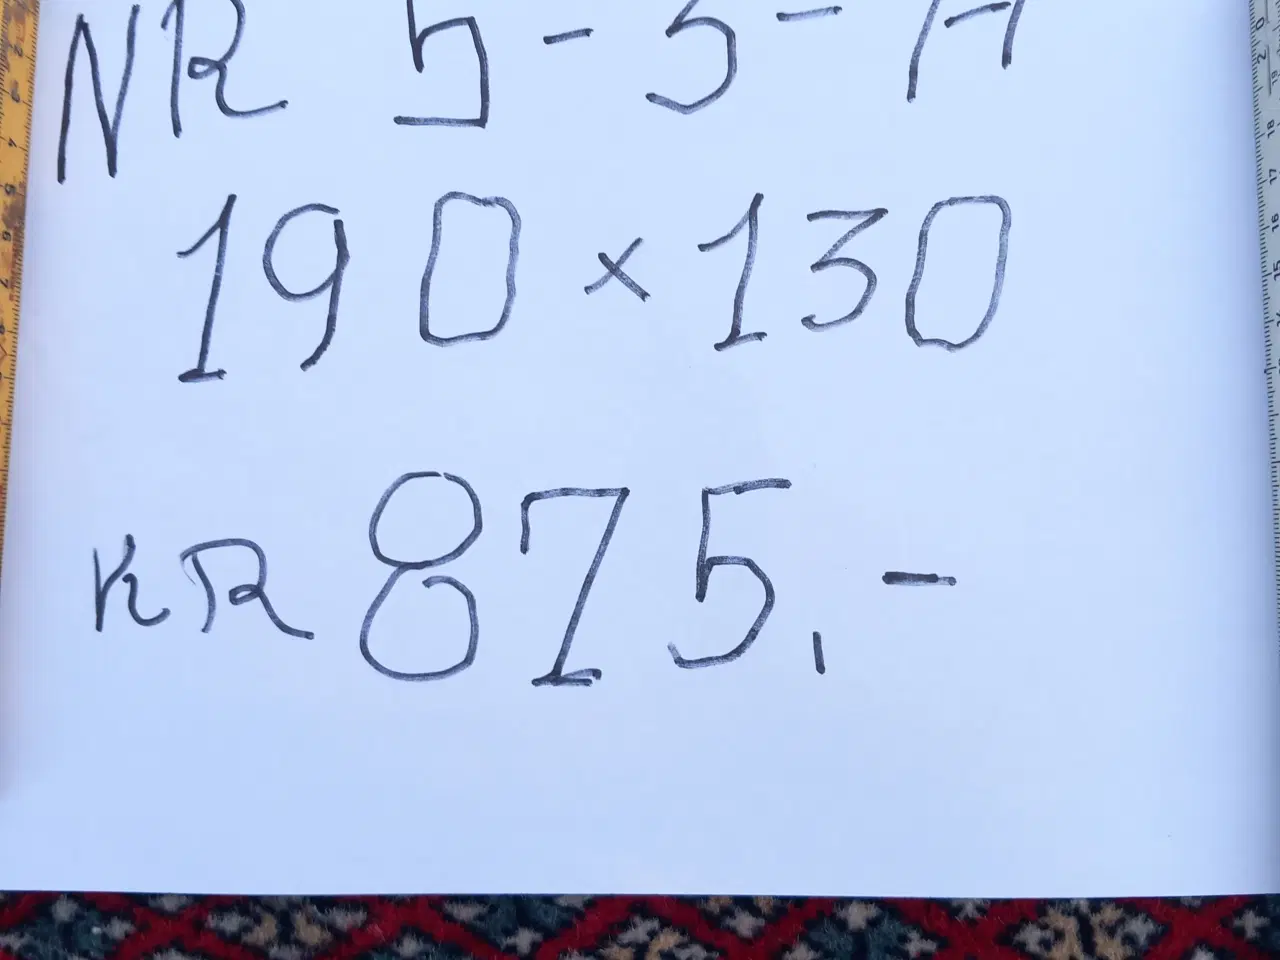 NR 5-5-A
190×130
KR 875,-